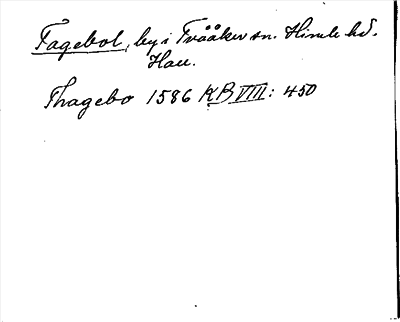 Fagebol, by i Tvååker sn. Himle hd.
Hall.
Thagebo 1586 KB VIII: 450